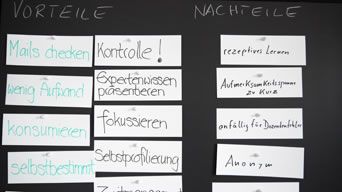 VORTEILE
NACHTEILE
Mails checken
wenig Aufwand
konsumieren
selbstbestimmt
Kontrolle!
Expertenwissen
präsentieren
fokussieren
Selbstprofilierung
rezeptives Lernen
Aufmerksamkeitsspanne
zu kurz
anfällig für Dozentenfehler
Anonym